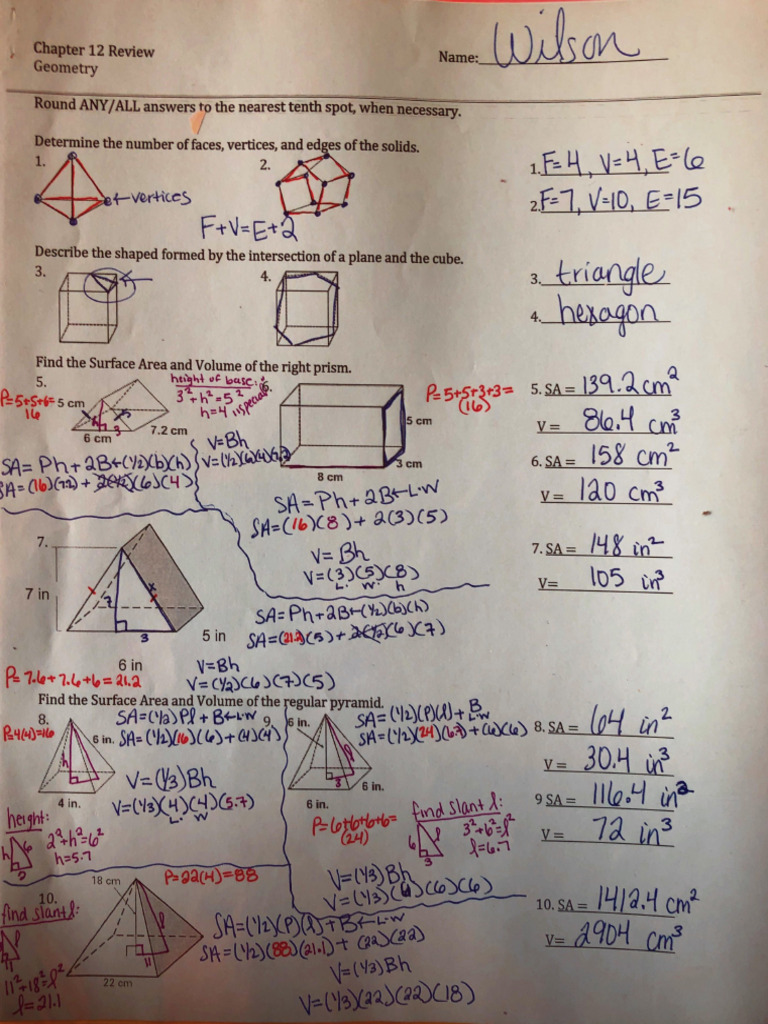 Chapter 12 Review
Geometry
Name: Wilson
Round ANY/ALL answers to the nearest tenth spot, when necessary.
Determine the number of faces, vertices, and edges of the solids.
1.
← vertices
2.
F+V=E+2
1. F=4, V=4, E=6
2. F=7, V=10, E=15
Describe the shaped formed by the intersection of a plane and the cube.
3.
4.
3. triangle
4. hexagon
Find the Surface Area and Volume of the right prism.
5.
P=5+5+6=
16
5 cm
6 cm
3
7.2 cm
height of base:
3²+h²=5²
h=4
V=Bh
SA= Ph+2B←(1/2)(b)(h)
SA=(16)(7.2)+2(1/2)(6)(4)
P=5+5+3+3=
(16)
5 cm
3 cm
8 cm
SA=Ph+2B←L·W
SA=(16)(8)+2(3)(5)
V=Bh
V=(3)(5)(8)
L. W. h
5. SA = 139.2 cm²
V = 86.4 cm³
6. SA = 158 cm²
V = 120 cm³
7.
7 in
7
x
3
5 in
6 in
P= 7.6+7.6+6=21.2
SA=Ph+2B←(1/2)(b)(h)
SA=(21.2)(5)+2(1/2)(6)(7)
V=Bh
V=(1/2)(6)(7)(5)
7. SA = 148 in²
V= 105 in³
Find the Surface Area and Volume of the regular pyramid.
8.
P=4(4)=16
6 in.
h
4 in.
SA=(1/2)Pl+B←L·W
SA=(1/2)(16)(6)+(4)(4)
V=(1/3)Bh
V=(1/3)(4)(4)(5.7)
L. W
height:
h 6
2
2²+h²=6²
h=5.7
9.
6 in.
l
3
6 in.
6 in.
SA=(1/2)(P)(l)+B
L·W
SA=(1/2)(24)(6.7)+(6)(6)
P=6+6+6+6=
(24)
find slant l:
6 l
3
3²+6²=l²
l=6.7
V=(1/3)Bh
V=(1/3)(6)(6)(6)
8. SA = 64 in²
V = 30.4 in³
9 SA = 116.4 in²
V = 72 in³
10.
18 cm
P=22(4)=88
find slant l:
11
11²+18²=l²
l=21.1
l
11
22 cm
SA=(1/2)(P)(l)+B←L·W
SA=(1/2)(88)(21.1)+(22)(22)
V=(1/3)Bh
V=(1/3)(22)(22)(18)
10. SA = 1412.4 cm²
V= 2904 cm³